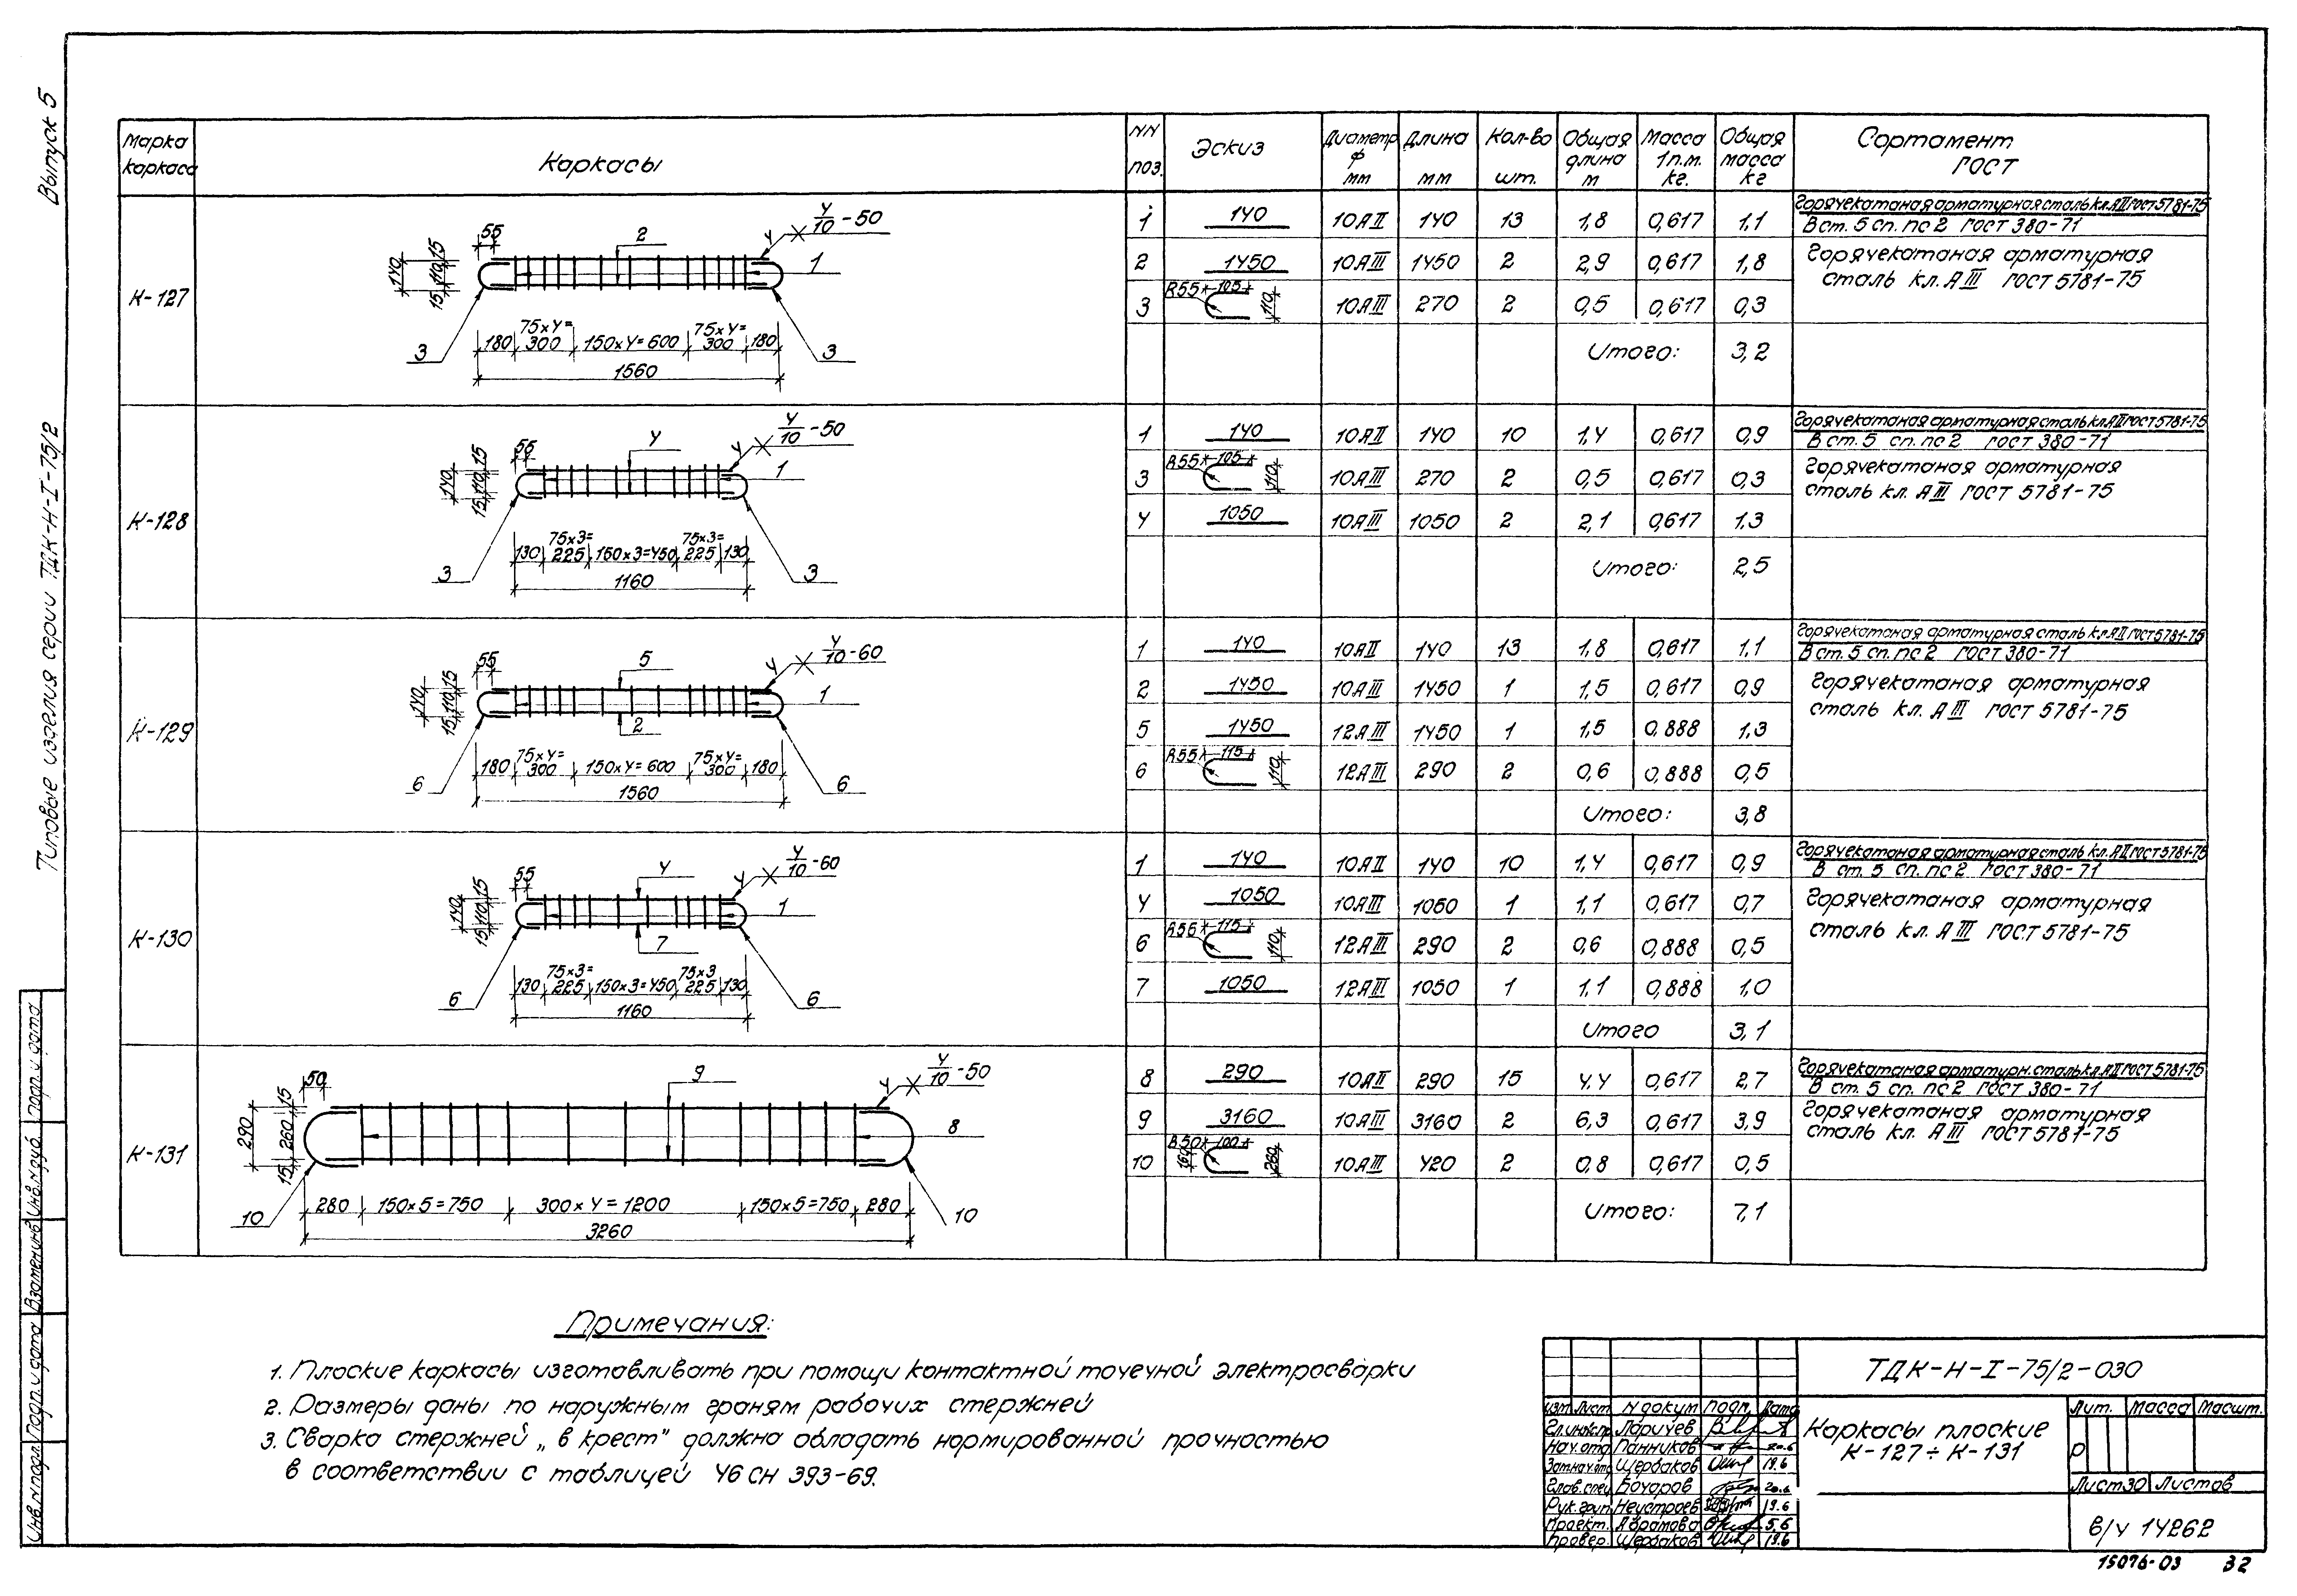 Выпуск 5
Типовые изделия серии ТДК-Н-I-75/2
Марка каркаса
Каркасы
NN поз.
Эскиз
Диаметр ф мм
Длина мм
Кол-во шт.
Общая длина м
Масса 1 п.м. кг.
Общая масса кг
Сортамент ГОСТ
К-127
55
140
15 110 15
2
4
4/10-50
1
3
3
180
75х4=300
150х4=600
75х4=300
180
1560
1 140 10АII 140 13 1,8 0,617 1,1
2 1450 10АIII 1450 2 2,9 0,617 1,8
3 R55 105 110 10АIII 270 2 0,5 0,617 0,3
Итого: 3,2
Горячекатаная арматурная сталь кл.АII ГОСТ 5781-75
В ст. 5 сп. пс 2 ГОСТ 380-71
Горячекатаная арматурная
сталь кл. АIII ГОСТ 5781-75
К-128
55
140
15 110 15
4
4
4/10-50
1
3
3
130
75х3=225
150х3=450
75х3=225
130
1160
1 140 10АII 140 10 1,4 0,617 0,9
3 R55 105 110 10АIII 270 2 0,5 0,617 0,3
4 1050 10АIII 1050 2 2,1 0,617 1,3
Итого: 2,5
Горячекатаная арматурная сталь кл.АII ГОСТ 5781-75
В ст. 5 сп. пс 2 ГОСТ 380-71
Горячекатаная арматурная
сталь кл. АIII ГОСТ 5781-75
К-129
55
140
15 110 15
5
4
4/10-60
1
2
6
6
180
75х4=300
150х4=600
75х4=300
180
1560
1 140 10АII 140 13 1,8 0,617 1,1
2 1450 10АIII 1450 1 1,5 0,617 0,9
5 1450 12АIII 1450 1 1,5 0,888 1,3
6 R55 115 110 12АIII 290 2 0,6 0,888 0,5
Итого: 3,8
Горячекатаная арматурная сталь кл.АII ГОСТ 5781-75
В ст. 5 сп. пс 2 ГОСТ 380-71
Горячекатаная арматурная
сталь кл. АIII ГОСТ 5781-75
К-130
55
140
15 110 15
4
4
4/10-60
1
7
6
6
130
75х3=225
150х3=450
75х3 225
130
1160
1 140 10АII 140 10 1,4 0,617 0,9
4 1050 10АIII 1050 1 1,1 0,617 0,7
6 R55 115 110 12АIII 290 2 0,6 0,888 0,5
7 1050 12АIII 1050 1 1,1 0,888 1,0
Итого 3,1
Горячекатаная арматурная сталь кл.АII ГОСТ 5781-75
В ст. 5 сп. пс 2 ГОСТ 380-71
Горячекатаная арматурная
сталь кл. АIII ГОСТ 5781-75
К-131
50
290
15 260 15
9
4
4/10-50
8
10
10
280
150х5=750
300х4=1200
150х5=750
280
3260
8 290 10АII 290 15 4.4 0,617 2,7
9 3160 10АIII 3160 2 6,3 0,617 3,9
10 R50 100 160 260 10АIII 420 2 0,8 0,617 0,5
Итого: 7,1
Горячекатаная арматурн. сталь кл.АII ГОСТ 5781-75
В ст. 5 сп. пс 2 ГОСТ 380-71
Горячекатаная арматурная
сталь кл. АIII ГОСТ 5781-75
Примечания:
1. Плоские каркасы изготавливать при помощи контактной точечной электросварки
2. Размеры даны по наружным граням рабочих стержней
3. Сварка стержней „в крест" должна обладать нормированной прочностью
в соответствии с таблицей 46 СН 393-69.
ТДК-Н-I-75/2-030
Каркасы плоские
К-127÷К-131
Лит. Масса Масшт.
Р
Лист 30 Листов
в/ч 14262
Изм Лист N докум Подп. Дата
Гл.инж.пр. Ларичев
Нач.отд Панников 20.6
Зам.нач.отд Щербаков 19.6
Глав.спец Бочаров 20.6
Рук.груп. Неустроев 19.6
Проект. Абрамова 5.6
Провер. Щербаков 19.6
Инв.N подл. Подп. и дата Взам.инв.N Инв.N дуб. Подп. и дата
15076-03 32